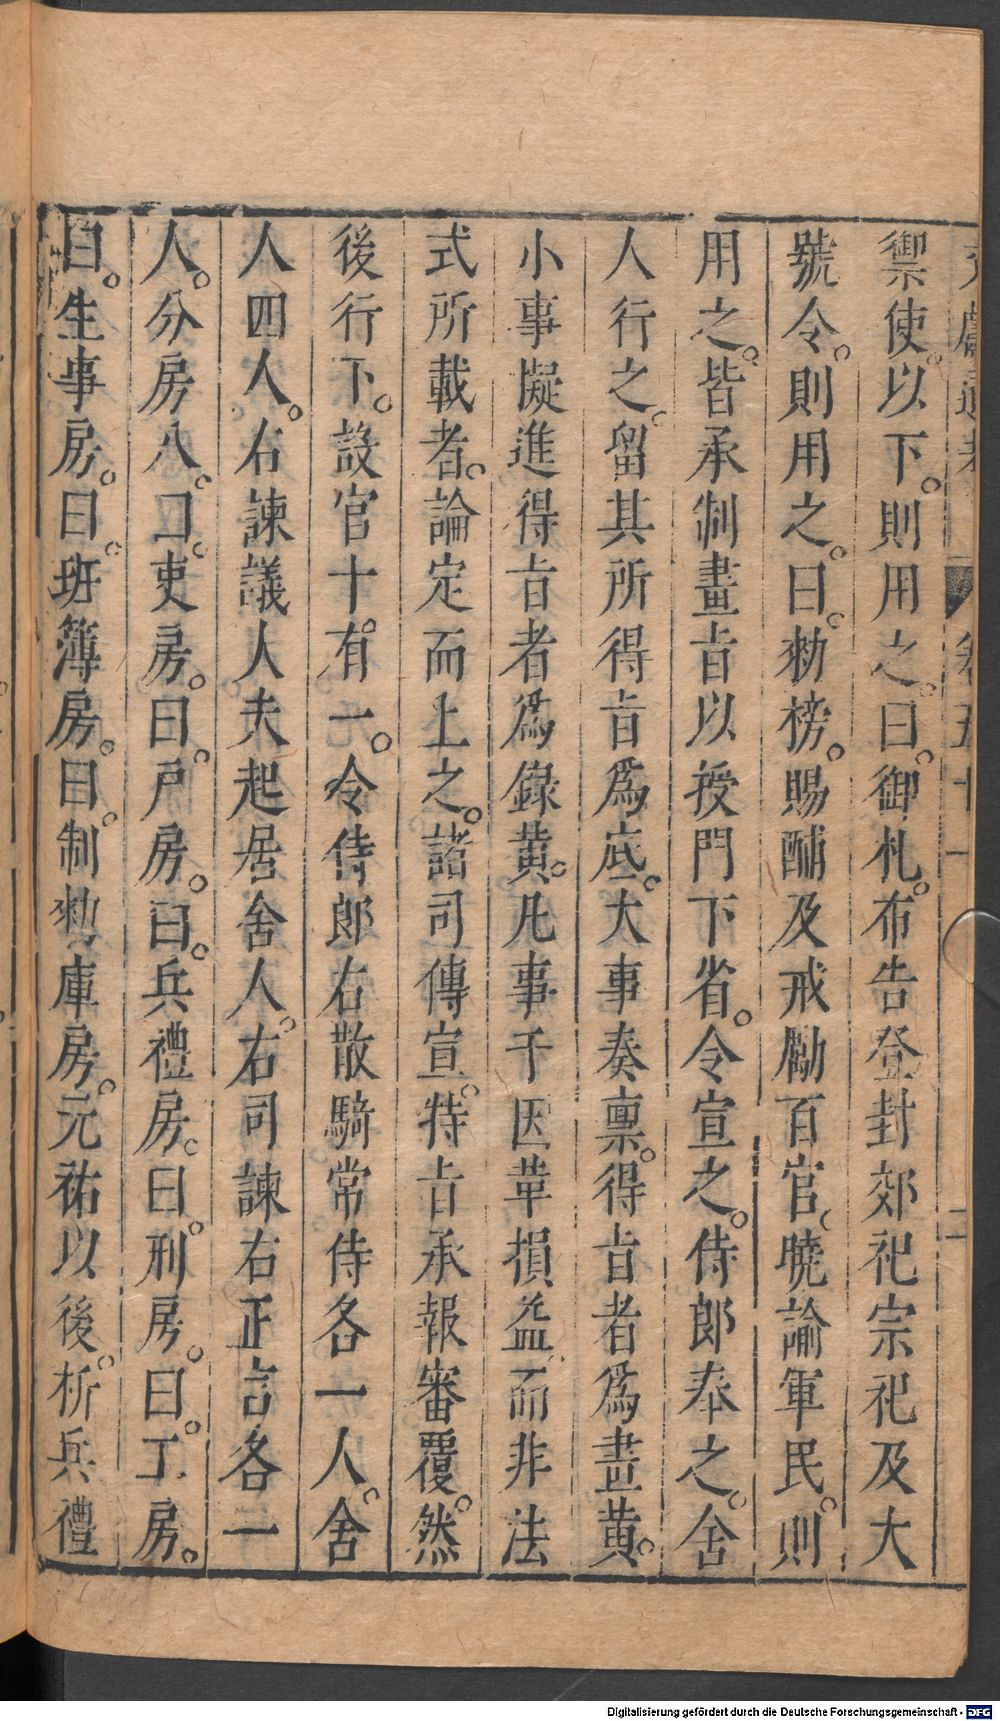 文獻通考 卷五十一 二
禦使。以下。則用之。曰。御札。布告登封郊祀宗祀及大
號令。則用之。曰。勑榜。賜酺及戒勵百官、曉諭軍民。則
用之。皆承制畫㫖以授門下省。令宣之。侍郎奉之。舍
人行之。留其所得㫖爲底。大事奏稟。得㫖者爲畫黃。
小事擬進得㫖者爲錄黃。凡事干因革損益、而非法
式所載者。論定而上之。諸司傳宣。特㫖承報審覆。然
後行下。設官十有一。令侍郎右散騎常侍各一人。舍
人四人。右諫議大夫起居舍人。右司諫右正言各一
人。分房八。曰。吏房。曰。戸房。曰。兵禮房。曰。刑房。曰。工房。
曰。生事房。曰。班簿房。曰。制勑庫房。元祐以後。析兵禮
Digitalisierung gefördert durch die Deutsche Forschungsgemeinschaft - DFG